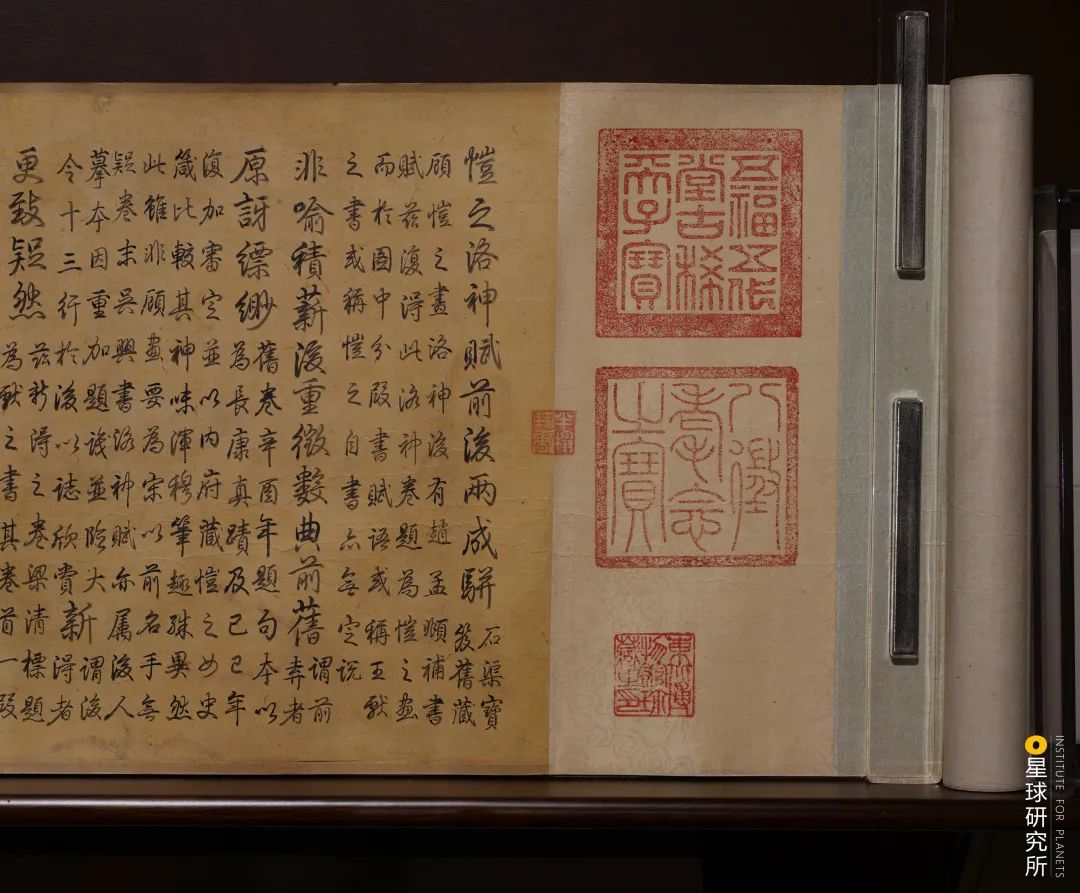 五福五代
堂古稀
天子寶
八徵
耄念
之寶
東北博
物館珍
藏之印
愷之洛神賦前後兩成駢石渠寶
笈舊藏
顧愷之畫洛神後有趙孟頫補書
賦茲復得此洛神卷題為愷之畫
而於圖中分段書賦語或稱王獻
之書或稱愷之自書亦無定說
非喻積薪後重徵數典前舊謂前
弆者
原訝縹緲舊卷辛酉年題句本以
為長康真蹟及己巳年
復加審定並以內府藏愷之女史
箴比較其神味渾穆筆趣殊異然
此雖非顧畫要為宋以前名手無
疑卷末吳興書洛神賦亦屬後人
摹本因重加題識並臨大
令十三行於後以誌欣賞新謂後
得者
更致疑然茲新得之卷梁清標題
為獻之書其卷首一段
星球研究所
INSTITUTE FOR PLANETS